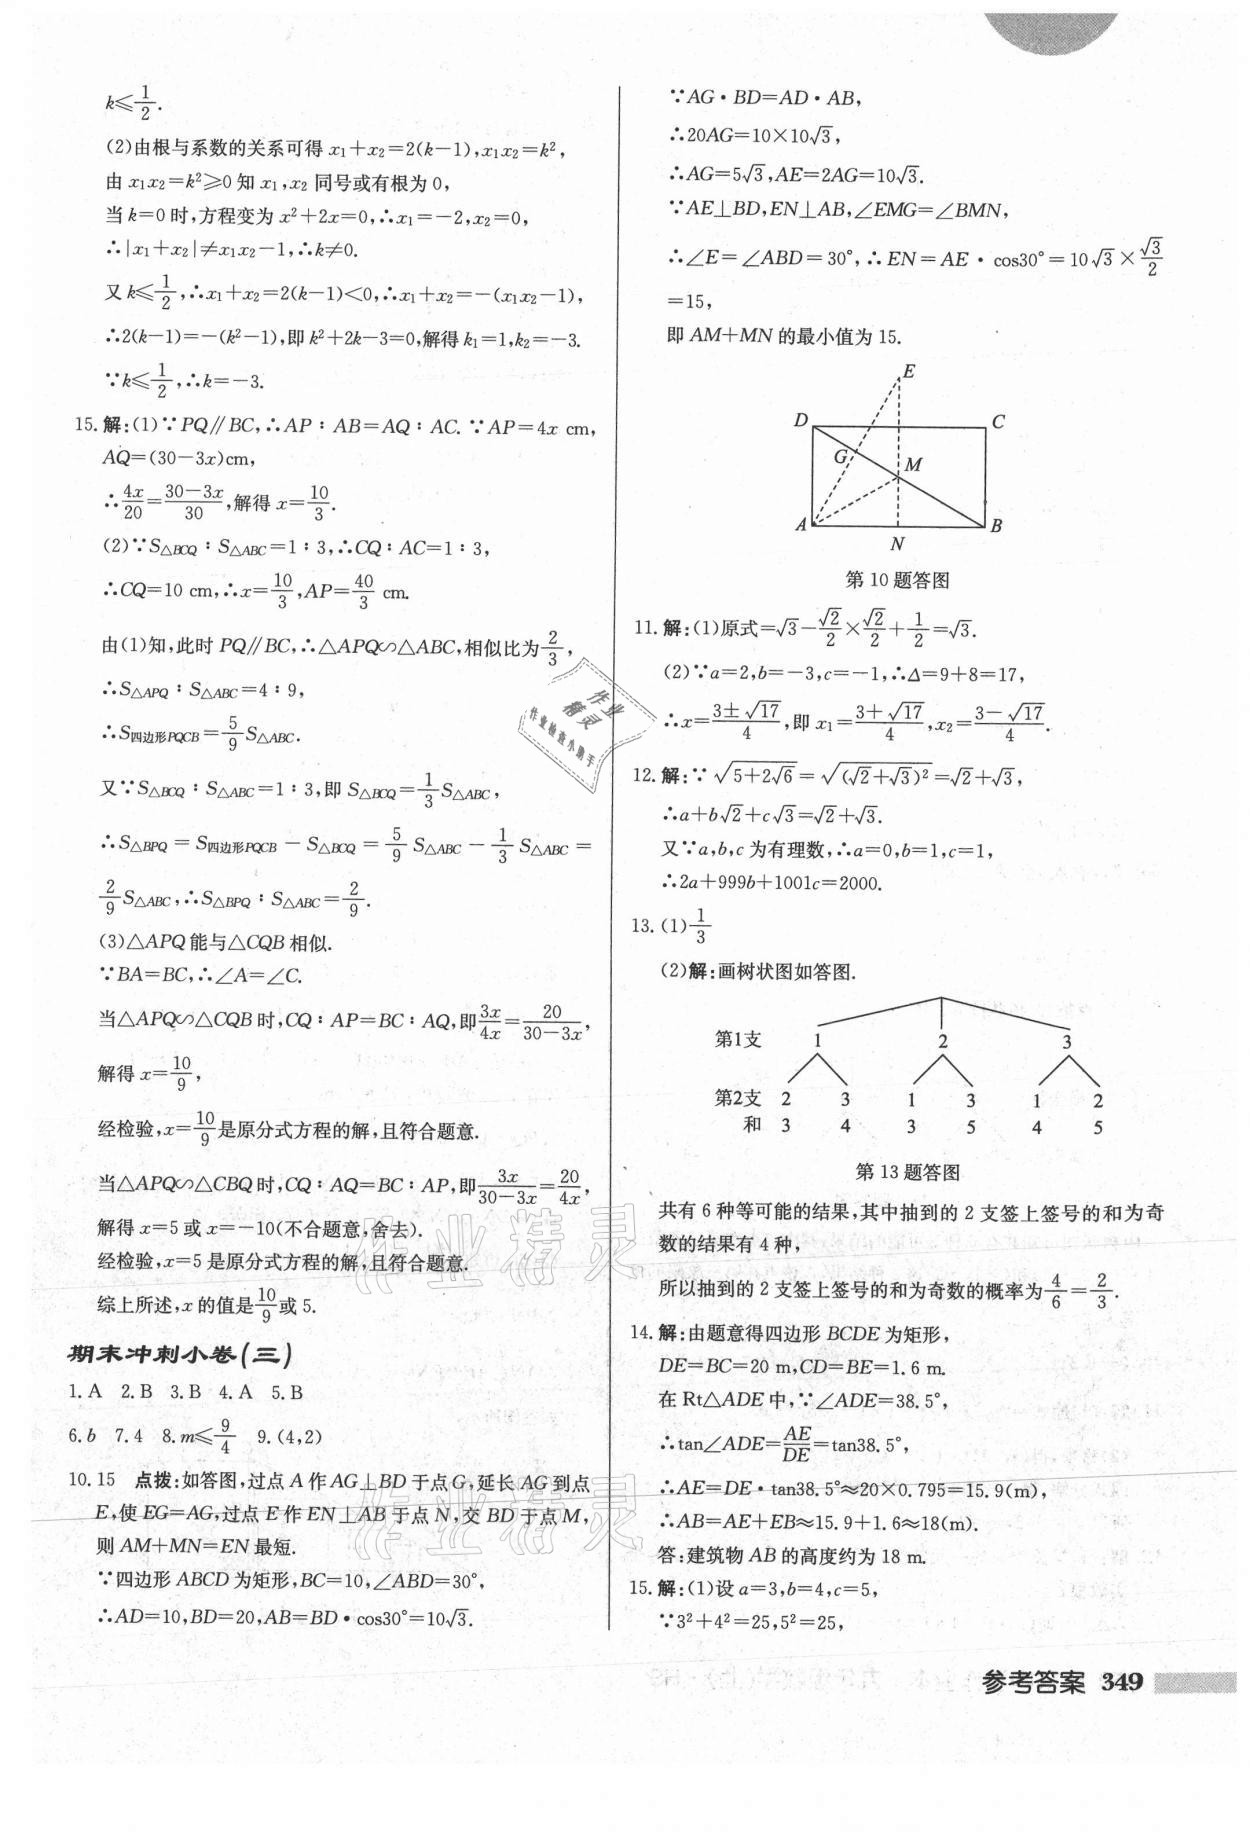 k≤1/2.
(2)由根与系数的关系可得 x₁+x₂=2(k−1),x₁x₂=k²,
由 x₁x₂=k²≥0 知 x₁,x₂ 同号或有根为 0,
当 k=0 时,方程变为 x²+2x=0,∴x₁=−2,x₂=0,
∴|x₁+x₂|≠x₁x₂−1,∴k≠0.
又 k≤1/2,∴x₁+x₂=2(k−1)<0,∴x₁+x₂=−(x₁x₂−1),
∴2(k−1)=−(k²−1),即 k²+2k−3=0,解得 k₁=1,k₂=−3.
∵k≤1/2,∴k=−3.
15. 解:(1)∵PQ∥BC,∴AP∶AB=AQ∶AC. ∵AP=4x cm,
AQ=(30−3x)cm,
∴4x/20=(30−3x)/30,解得 x=10/3.
(2)∵S△BCQ∶S△ABC=1∶3,∴CQ∶AC=1∶3,
∴CQ=10 cm,∴x=10/3,AP=40/3 cm.
由(1)知,此时 PQ∥BC,∴△APQ∽△ABC,相似比为2/3,
∴S△APQ∶S△ABC=4∶9,
∴S四边形PQCB=5/9 S△ABC.
又∵S△BCQ∶S△ABC=1∶3,即 S△BCQ=1/3 S△ABC,
∴S△BPQ=S四边形PQCB−S△BCQ=5/9 S△ABC−1/3 S△ABC=
2/9 S△ABC,∴S△BPQ∶S△ABC=2/9.
(3)△APQ 能与△CQB 相似.
∵BA=BC,∴∠A=∠C.
当△APQ∽△CQB 时,CQ∶AP=BC∶AQ,即3x/4x=20/(30−3x),
解得 x=10/9,
经检验,x=10/9是原分式方程的解,且符合题意.
当△APQ∽△CBQ 时,CQ∶AQ=BC∶AP,即3x/(30−3x)=20/4x,
解得 x=5 或 x=−10(不合题意,舍去).
经检验,x=5 是原分式方程的解,且符合题意.
综上所述,x 的值是10/9或 5.
期末冲刺小卷(三)
1. A 2. B 3. B 4. A 5. B
6. b 7. 4 8. m≤9/4 9. (4,2)
10. 15 点拨:如答图,过点 A 作 AG⊥BD 于点 G,延长 AG 到点
E,使 EG=AG,过点 E 作 EN⊥AB 于点 N,交 BD 于点 M,
则 AM+MN=EN 最短.
∵四边形 ABCD 为矩形,BC=10,∠ABD=30°,
∴AD=10,BD=20,AB=BD·cos30°=10√3.
∵AG·BD=AD·AB,
∴20AG=10×10√3,
∴AG=5√3,AE=2AG=10√3.
∵AE⊥BD,EN⊥AB,∠EMG=∠BMN,
∴∠E=∠ABD=30°,∴EN=AE·cos30°=10√3×√3/2
=15,
即 AM+MN 的最小值为 15.
E
D C
G M
A B
N
第 10 题答图
11. 解:(1)原式=√3−√2/2×√2/2+1/2=√3.
(2)∵a=2,b=−3,c=−1,∴Δ=9+8=17,
∴x=(3±√17)/4,即 x₁=(3+√17)/4,x₂=(3−√17)/4.
12. 解:∵√(5+2√6)=√((√2+√3)²)=√2+√3,
∴a+b√2+c√3=√2+√3.
又∵a,b,c 为有理数,∴a=0,b=1,c=1,
∴2a+999b+1001c=2000.
13. (1)1/3
(2)解:画树状图如答图.
第1支 1 2 3
第2支 2 3 1 3 1 2
和 3 4 3 5 4 5
第 13 题答图
共有 6 种等可能的结果,其中抽到的 2 支签上签号的和为奇
数的结果有 4 种,
所以抽到的 2 支签上签号的和为奇数的概率为4/6=2/3.
14. 解:由题意得四边形 BCDE 为矩形,
DE=BC=20 m,CD=BE=1.6 m.
在 Rt△ADE 中,∵∠ADE=38.5°,
∴tan∠ADE=AE/DE=tan38.5°,
∴AE=DE·tan38.5°≈20×0.795=15.9(m),
∴AB=AE+EB≈15.9+1.6≈18(m).
答:建筑物 AB 的高度约为 18 m.
15. 解:(1)设 a=3,b=4,c=5,
∵3²+4²=25,5²=25,
作业
精灵
作业检查小助手
作业精灵
作业精灵
参考答案 349